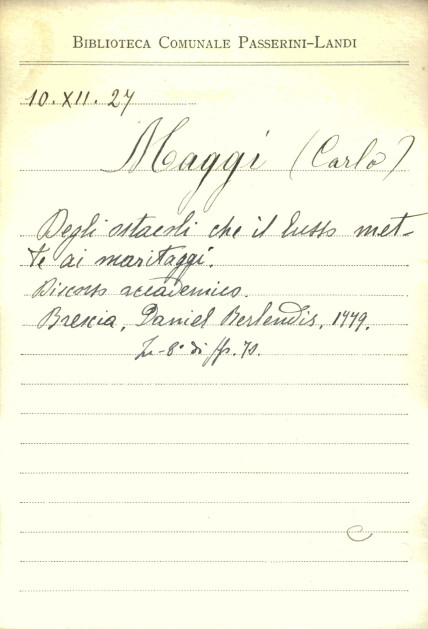 BIBLIOTECA COMUNALE PASSERINI-LANDI
10.XII.27
Maggi (Carlo)
Degli ostacoli che il lusso met-
te ai maritaggi.
Discorso accademico.
Brescia, Daniel Berlendis, 1779.
In-8° di pp. 70.
C